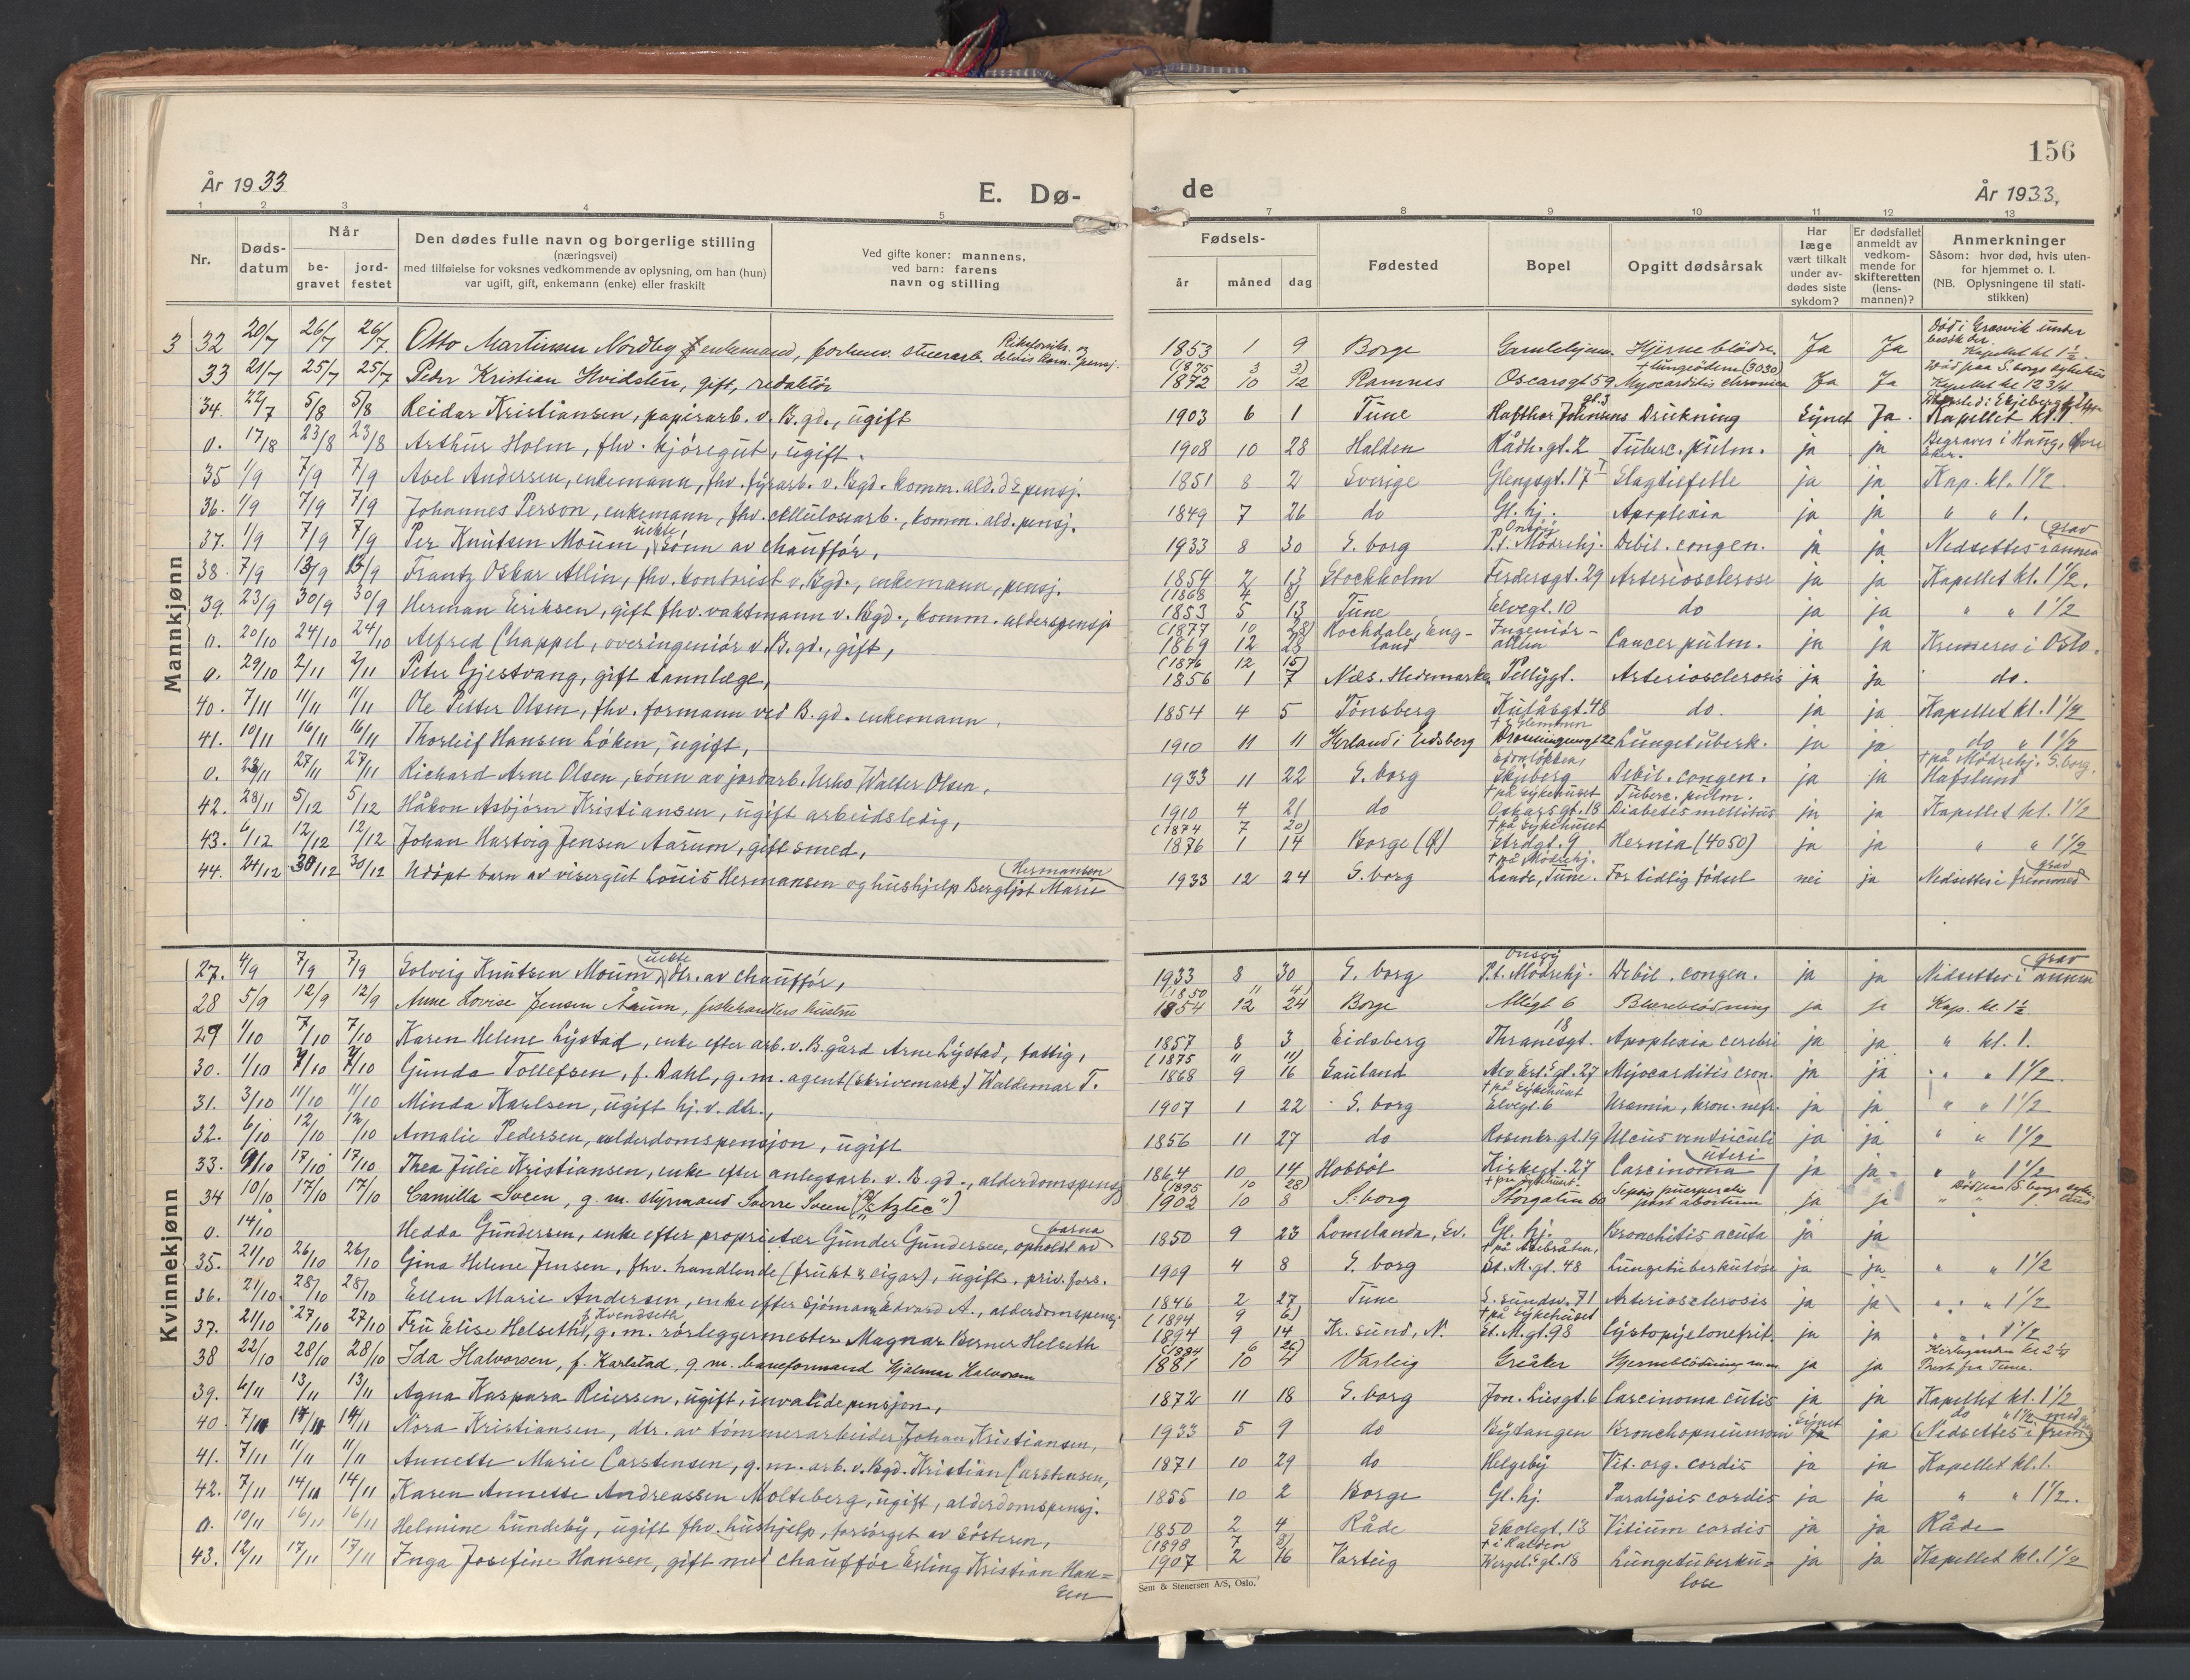 156
År 1933
E. Dø-
de
År 1933.
1 2 3 4 5 7 8 9 10 11 12 13
Nr.
Døds-
datum
Når
be-
gravet
jord-
festet
Den dødes fulle navn og borgerlige stilling
(næringsvei)
med tilføielse for voksnes vedkommende av oplysning, om han (hun)
var ugift, gift, enkemann (enke) eller fraskilt
Ved gifte koner: mannens,
ved barn: farens
navn og stilling
Fødsels-
år
måned
dag
Fødested
Bopel
Opgitt dødsårsak
Har
læge
vært tilkalt
under av-
dødes siste
sykdom?
Er dødsfallet
anmeldt av
vedkom-
mende for
skifteretten
(lens-
mannen)?
Anmerkninger
Såsom: hvor død, hvis uten-
for hjemmet o. l.
(NB. Oplysningene til stati-
stikken)
Mankjønn
3 32 20/7 26/7 26/7 Otto Martinsen Nordby, enkemand, forhenv. stuerarb. 1853 1 9 Borge Gamlehjem. Hjerneblødn. Ja Ja Død i Græsvik under besøk der. Kapellet kl 1½
33 21/7 25/7 25/7 Peder Kristian Hvidsten, gift, redaktør (1875 3 3) 1872 10 12 Ramnes Oscarsgt 59 Myocarditis chronica + lungeødem (3030) Ja Ja Død paa S.borgs sykehus Kapellet kl 12 3/4
34. 22/7 5/8 5/8 Reidar Kristiansen, papirarb. v. B.gd., ugift 1903 6 1 Tune Hafthor Johnsens gt. 3 Drukning Synet Ja. Kapellet kl. 1
0. 17/8 23/8 23/8 Arthur Holm, fhv. kjøregut, ugift. 1908 10 28 Halden Rådh.gt. 2 Tuberc. pulm. ja ja Begraves i Haug, Øvre Eker.
35 1/9 7/9 7/9 Abel Andersen, enkemann, fhv. fyrarb. v. Bgd. komm. ald.ds pensj. 1851 8 2 Sverige Glengsgt. 17 I Slagtilfelle ja ja Kap. kl. 1½
36. 1/9 7/9 7/9 Johannes Person, enkemann, fhv. cellulosearb., komm. ald. pensj. 1849 7 26 do Gl. hj. Apoplexia ja ja " " 1.
37. 1/9 7/9 7/9 Per Knutsen Moum, uekte, sønn av chauffør, 1933 8 30 S. borg Onsøy P.t. Mødrehj. Debil. congen. ja ja Nedsettes i annen grav
38. 7/9 13/9 13/9 Frantz Oskar Allin, fhv. kontorist v. Bgd., enkemann, pensj. 1854 2 13 Stockholm Ferdersgt. 29 Arteriosclerose ja ja Kapellet kl. 1½.
39. 23/9 30/9 30/9 Herman Eriksen, gift fhv. vaktmann v. Bgd., komm. alderspensj. (1868 4 8) 1853 5 13 Tune Elvegt. 10 do ja ja " " 1½
0. 20/10 24/10 24/10 Alfred Chappel, overingeniør v. B.gd., gift, (1877 10 28) 1869 12 28 Rochdale, Eng-land Ingeniør-alleen Cancer pulm. ja ja Kremeres i Oslo.
0. 29/10 2/11 2/11 Peter Gjestvang, gift tannlæge, (1876 12 15) 1856 1 7 Næs. Hedemarken Pellygt. Arteriosclerosis ja ja do.
40. 7/11 11/11 11/11 Ole Petter Olsen, fhv. formann ved B.gd. enkemann. 1854 4 5 Tønsberg Kulåsgt. 48 do. ja ja Kapellet kl. 1½
41. 10/11 16/11 16/11 Thorleif Hansen Løken, ugift, 1910 11 11 Herland i Eidsberg + i Glemmen Dronningensgt 22 Lungetuberk. ja ja do " 1½
0. 23/11 27/11 27/11 Richard Arne Olsen, sønn av jordarb. Urho Walter Olsen. 1933 11 22 S. borg Skjeberg Debil. congen. ja ja + på Mødrehj. S.borg. Hafslund
42. 28/11 5/12 5/12 Håkon Asbjørn Kristiansen, ugift arbeidsledig, 1910 4 21 do + på sykehuset Oskarsgt. 18 Tuberc. pulm. Diabetes mellitus ja ja Kapellet kl. 1½
43. 6/12 12/12 12/12 Johan Hartvig Jensen Aarum, gift smed, (1874 7 20) 1876 1 14 Borge (Ø) + på sykehuset Strdgt. 9 Hernia (4050) ja ja " " 1½
44. 24/12 30/12 30/12 Udøpt barn av visergut Louis Hermansen og hushjelp Bergljot Marie Hermansen 1933 12 24 S. borg + på Mødrehj. Lande, Tune. For tidlig fødsel nei ja Nedsettes i fremmed grav
Kvinnekjønn
27. 4/9 7/9 7/9 Solveig Knutsen Moum, uekte dtr. av chauffør, 1933 8 30 S. borg Onsøy P.t. Mødrehj. Debil. congen. ja ja Nedsettes i annen grav
28 5/9 12/9 12/9 Anne Lovise Jensen Årum, fiskehandlers hustru (1850 11 4) 1854 12 24 Borge Allégt 6 Blæreblødning ja ja Kap. kl. 1½
29 1/10 7/10 7/10 Karen Helene Lystad, enke efter arb. v. B.gård Arne Lystad, fattig, 1857 8 3 Eidsberg Thranesgt. 18 Apoplexia cerebri ja ja " kl. 1.
30. 1/10 7/10 7/10 Gunda Tollefsen, f. Dahl, g. m. agent (skrivemask.) Waldemar T. (1875 11 11) 1868 9 16 Sauland 27 Myocarditis cron. ja ja " " 1½.
31. 3/10 11/10 11/10 Minda Karlsen, ugift hj. v. dtr., 1907 1 22 S. borg + på Sykehuset Elvegt. 6 Uremia, kron. nefr. ja ja " " 1½
32. 6/10 12/10 12/10 Amalie Pedersen, alderdomspensjon, ugift 1856 11 27 do Rosenkr.gt. 19 Ulcus ventriculi ja ja " " 1½
33. 9/10 17/10 17/10 Thea Julie Kristiansen, enke efter anlegsarb. v. B.gd., alderdomspensj. 1864 10 14 Hobbøl Kirkegt. 27 Carcinoma uteri ja ja " " 1½
34 10/10 17/10 17/10 Camilla Sveen, g. m. styrmand Sverre Sveen (D/S "Aztec") (1895 10 28) 1902 10 8 S. borg + på Sykehuset. Storgaten 60 Sepsis puerperalis post abortum ja ja Død paa S.borgs sykehus " " 1.
0. 14/10 Hedda Gundersen, enke efter proprietær Gunder Gundersen, opholdt av barna 1850 9 23 Lomelanda, Sv. Gl. hj. Bronchitis acuta ja ja
35. 21/10 26/10 26/10 Gina Helene Jensen, fhv. handlende (frukt & cigar), ugift. priv. fors. 1909 4 8 S. borg St. M. gt. 48 Lungetuberkulose ja ja " " 1½
36. 21/10 28/10 28/10 Ellen Marie Andersen, enke efter sjømann Edvard A., alderdomspensj. 1846 2 27 Tune S. sundsv. 71 Arteriosclerosis ja ja " " 1½
37. 21/10 27/10 27/10 Fru Elise Helseth f. Kvendseth, g. m. rørleggermester Magnar Berner Helseth (1894 9 6) 1894 9 14 Kr. sund, N. + på Sykehuset St. M. gt. 98 Cystopyelonefrit. ja ja " " 1½
38 22/10 28/10 28/10 Ida Halvorsen, f. Karlstad, g. m. baneformand Hjalmar Halvorsen (1884 6 26) 1881 10 4 Varteig Greåker Hjerneblødning m.m. ja ja Kirkegaarden kl 2¼ Prest fra Tune.
39. 6/11 13/11 13/11 Agna Kaspara Reiersen, ugift, invalidepensjon, 1872 11 18 S. borg Jon. Liesgt. 6 Carcinoma cutis ja ja Kapellet kl. 1½
40. 7/11 14/11 14/11 Nora Kristiansen, dtr. av tømmerarbeider Johan Kristiansen, 1933 5 9 do Bytangen Bronchopneumoni Synet ja do " 1½ (Nedsettes i frem.)
41. 7/11 11/11 11/11 Annette Marie Carstensen, g. m. arb. v. Bgd. Kristian Carstensen, 1871 10 29 do Helgeby Vit. org. cordis ja ja Kapellet kl. 1.
42. 7/11 14/11 14/11 Karen Annette Andreassen Molteberg, ugift, alderdomspensj. 1855 10 2 Borge Gl. hj. Paralysis cordis ja ja " " 1½.
0. 10/11 16/11 16/11 Helmine Lundeby, ugift fhv. hushjelp, forsørget av søsteren, 1850 2 4 Råde Skolegt. 13 Vitium cordis ja ja Råde
43. 12/11 17/11 17/11 Inga Josefine Hansen, gift med chauffør Erling Kristian Han=sen (1898 7 8) 1907 2 16 Varteig + i Halden Wergel.s gt. 18 Lungetuberku=lose ja ja Kapellet kl. 1½
Sem & Stenersen A/S, Oslo.